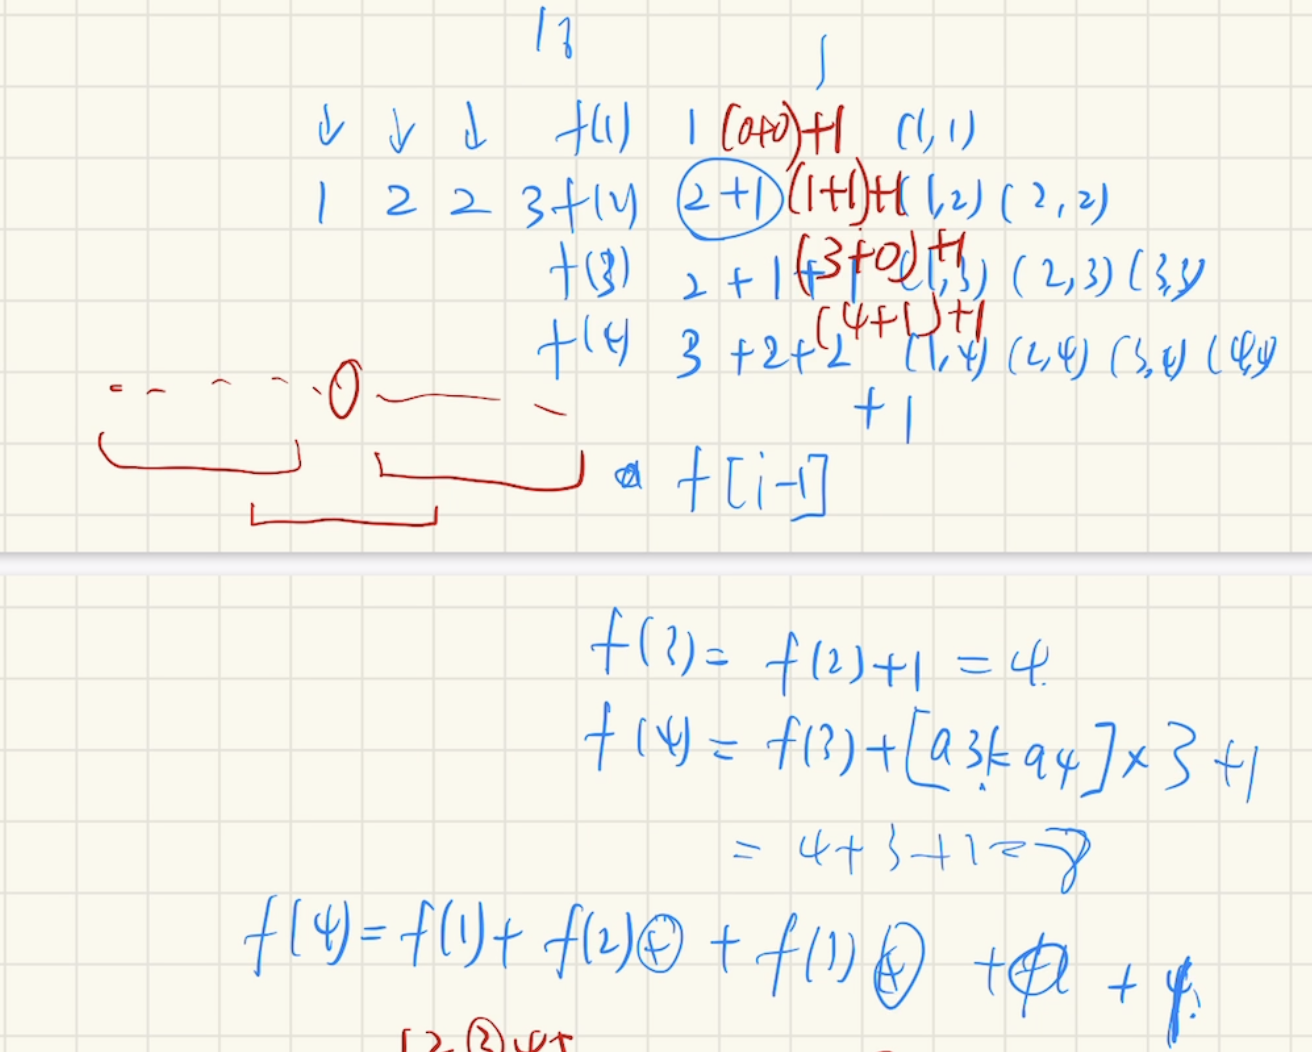 13
f(1) 1 (0+0)+1 (1,1)
1 2 2 3 f(2) 2+1 (1+1)+1 (1,2) (2,2)
f(3) 2+1+1 (3+0)+1 (1,3) (2,3) (3,3)
f(4) 3+2+2 (4+1)+1 (1,4) (2,4) (3,4) (4,4)
+1
f[i-1]
f(3) = f(2)+1 = 4
f(4) = f(3)+[a3≠a4]×3+1
= 4+3+1=8
f(4)=f(1)+f(2) + f(3)